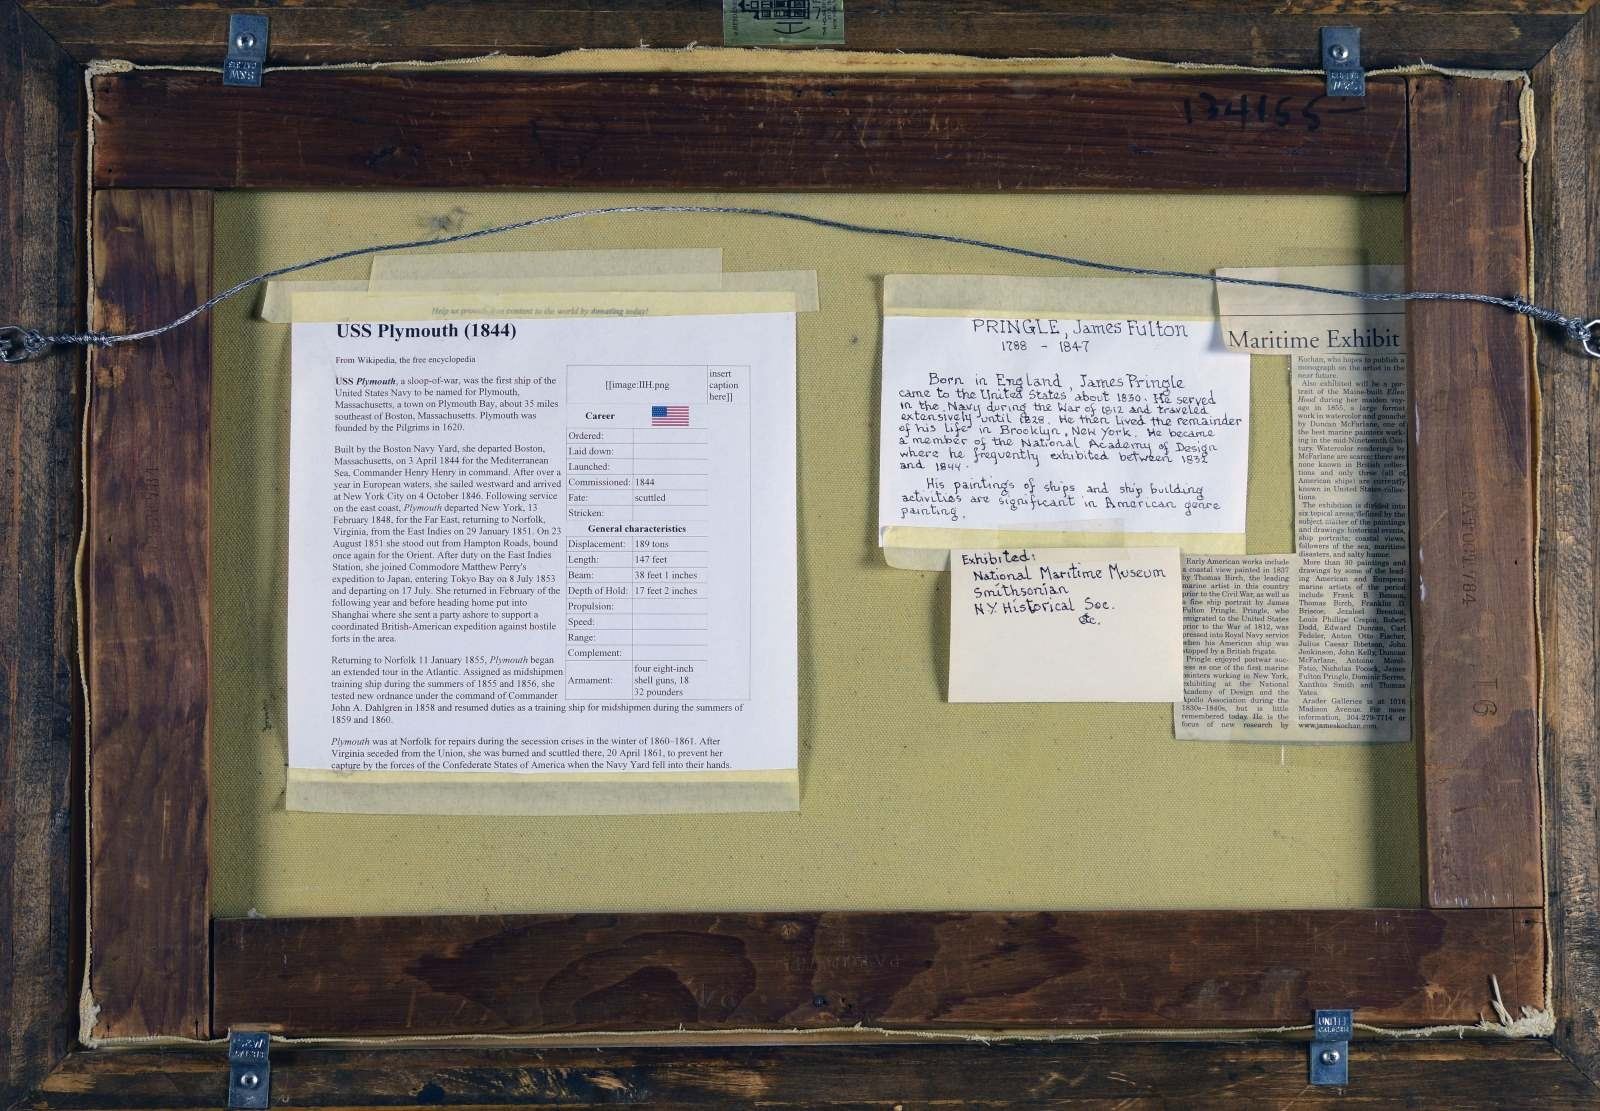 134155
Help us provide free content to the world by donating today!
USS Plymouth (1844)
From Wikipedia, the free encyclopedia
USS Plymouth, a sloop-of-war, was the first ship of the
United States Navy to be named for Plymouth,
Massachusetts, a town on Plymouth Bay, about 35 miles
southeast of Boston, Massachusetts. Plymouth was
founded by the Pilgrims in 1620.
Built by the Boston Navy Yard, she departed Boston,
Massachusetts, on 3 April 1844 for the Mediterranean
Sea, Commander Henry Henry in command. After over a
year in European waters, she sailed westward and arrived
at New York City on 4 October 1846. Following service
on the east coast, Plymouth departed New York, 13
February 1848, for the Far East, returning to Norfolk,
Virginia, from the East Indies on 29 January 1851. On 23
August 1851 she stood out from Hampton Roads, bound
once again for the Orient. After duty on the East Indies
Station, she joined Commodore Matthew Perry's
expedition to Japan, entering Tokyo Bay on 8 July 1853
and departing on 17 July. She returned in February of the
following year and before heading home put into
Shanghai where she sent a party ashore to support a
coordinated British-American expedition against hostile
forts in the area.
Returning to Norfolk 11 January 1855, Plymouth began
an extended tour in the Atlantic. Assigned as midshipmen
training ship during the summers of 1855 and 1856, she
tested new ordnance under the command of Commander
John A. Dahlgren in 1858 and resumed duties as a training ship for midshipmen during the summers of
1859 and 1860.
Plymouth was at Norfolk for repairs during the secession crises in the winter of 1860–1861. After
Virginia seceded from the Union, she was burned and scuttled there, 20 April 1861, to prevent her
capture by the forces of the Confederate States of America when the Navy Yard fell into their hands.
[[image:IIH.png
insert
caption
here]]
Career
Ordered:
Laid down:
Launched:
Commissioned: 1844
Fate: scuttled
Stricken:
General characteristics
Displacement: 189 tons
Length: 147 feet
Beam: 38 feet 1 inches
Depth of Hold: 17 feet 2 inches
Propulsion:
Speed:
Range:
Complement:
Armament: four eight-inch
shell guns, 18
32 pounders
PRINGLE, James Fulton
1788 - 1847
Born in England, James Pringle
came to the United States about 1830. He served
in the Navy during the War of 1812 and traveled
extensively until 1828. He then lived the remainder
of his life in Brooklyn, New York. He became
a member of the National Academy of Design
where he frequently exhibited between 1832
and 1844.
His paintings of ships and ship building
activities are significant in American genre
painting.
Exhibited:
National Maritime Museum
Smithsonian
N.Y. Historical Soc.
&c.
Maritime Exhibit
Early American works include
a coastal view painted in 1837
by Thomas Birch, the leading
marine artist in this country
prior to the Civil War, as well as
a fine ship portrait by James
Fulton Pringle. Pringle, who
emigrated to the United States
prior to the War of 1812, was
pressed into Royal Navy service
when his American ship was
stopped by a British frigate.
Pringle enjoyed postwar suc-
cess as one of the first marine
painters working in New York,
exhibiting at the National
Academy of Design and the
Apollo Association during the
1830s–1840s, but is little
remembered today. He is the
focus of new research by
Kochan, who hopes to publish a
monograph on the artist in the
near future.
Also exhibited will be a por-
trait of the Maine-built Ellen
Hood during her maiden voy-
age in 1855, a large format
work in watercolor and gouache
by Duncan McFarlane, one of
the best marine painters work-
ing in the mid-Nineteenth Cen-
tury. Watercolor renderings by
McFarlane are scarce; there are
none known in British collec-
tions and only three (all of
American ships) are currently
known in United States collec-
tions.
The exhibition is divided into
six topical areas, defined by the
subject matter of the paintings
and drawings: historical events,
ship portraits; coastal views,
followers of the sea, maritime
disasters, and salty humor.
More than 30 paintings and
drawings by some of the lead-
ing American and European
marine artists of the period
include Frank B. Benson,
Thomas Birch, Franklin D.
Briscoe, Jerahsel Brenton,
Louis Phillipe Crepin, Robert
Dodd, Edward Duncan, Carl
Fedeler, Anton Otto Fischer,
Julius Caesar Ibbetson, John
Jenkinson, John Kelly, Duncan
McFarlane, Antoine Morel-
Fatio, Nicholas Pocock, James
Fulton Pringle, Dominic Serres,
Xanthus Smith and Thomas
Yates.
Arader Galleries is at 1016
Madison Avenue. For more
information, 304-279-7714 or
www.jameskochan.com.
UNITED